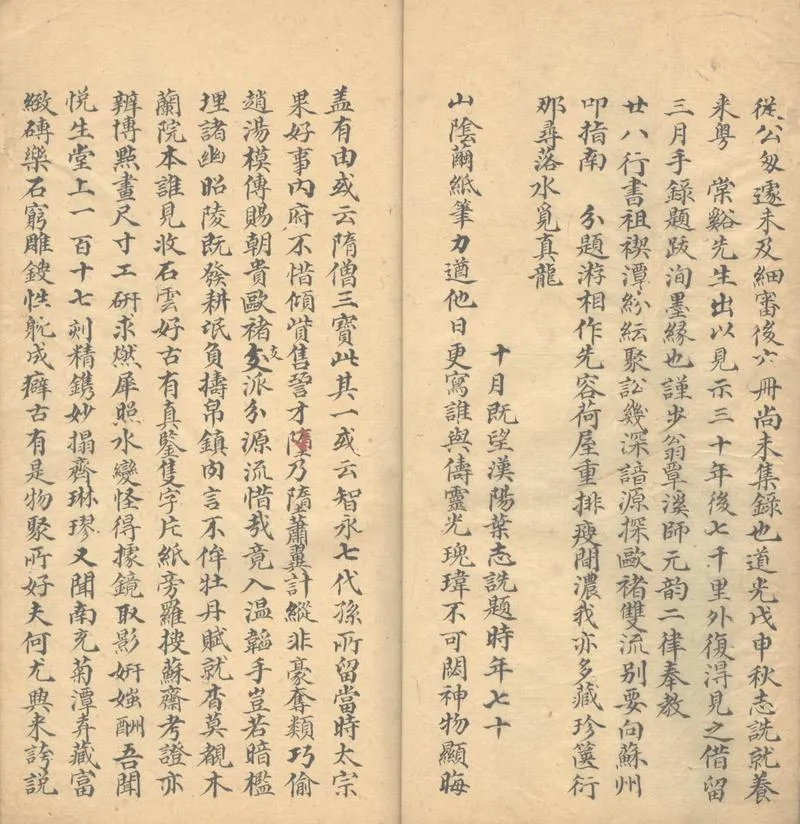 從公匆遽未及細審後六冊尚未集錄也道光戊申秋志詵就養
來粵　棠谿先生出以見示三十年後七千里外復得見之借留
三月手錄題跋洵墨緣也謹步翁覃溪師元韵二律奉教
廿八行書祖禊潭紛紜聚訟幾深諳源探歐褚雙流別要向蘇州
叩指南　分題游相作先容荷屋重排瘦間濃我亦多藏珍篋衍
那尋落水覓真龍
十月既望漢陽葉志詵題時年七十
山陰繭紙筆力遒他日更寫誰與儔靈光瑰瑋不可閟神物顯晦
蓋有由或云隋僧三寶此其一或云智永七代孫所留當時太宗
果好事內府不惜傾貲售詧才墮乃隨蕭翼計縱非豪奪類巧偷
趙湯模傳賜朝貴歐褚交支派分源流惜哉竟入温韜手豈若暗檻
埋諸幽昭陵既發耕氓負擣帛鎮肉言不侔牡丹賦就杳莫覩木
蘭院本誰見收石雲好古有真鑒隻字片紙旁羅搜蘇齋考證亦
辨博點畫尺寸工研求燃犀照水變怪得據鏡取影妍媸酬吾聞
悦生堂上一百十七刻精鐫妙搨齊琳璆又聞南充菊潭弆藏富
緻磚樂石窮雕鎪性躭成癖古有是物聚所好夫何尤興來誇説